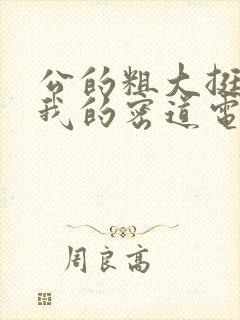 公的粗大挺
我的密道電
周良高